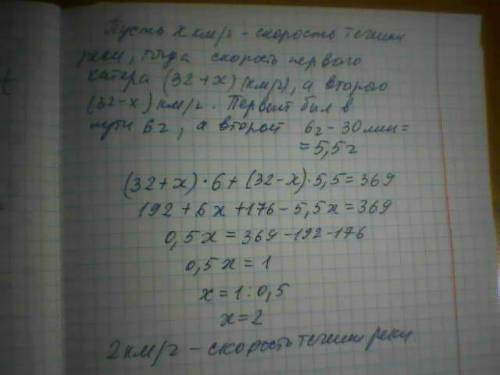 Пусть x км/г - скорость течения
реки, тогда скорость первого
катера (32+x) (км/г), а второго
(32-x) км/г. Первый был в
пути 6г, а второй 6г - 30 мин =
= 5,5г
(32+x)·6+(32-x)·5,5=369
192+6x+176-5,5x=369
0,5x=369-192-176
0,5x=1
x=1:0,5
x=2
2км/г - скорость течения реки